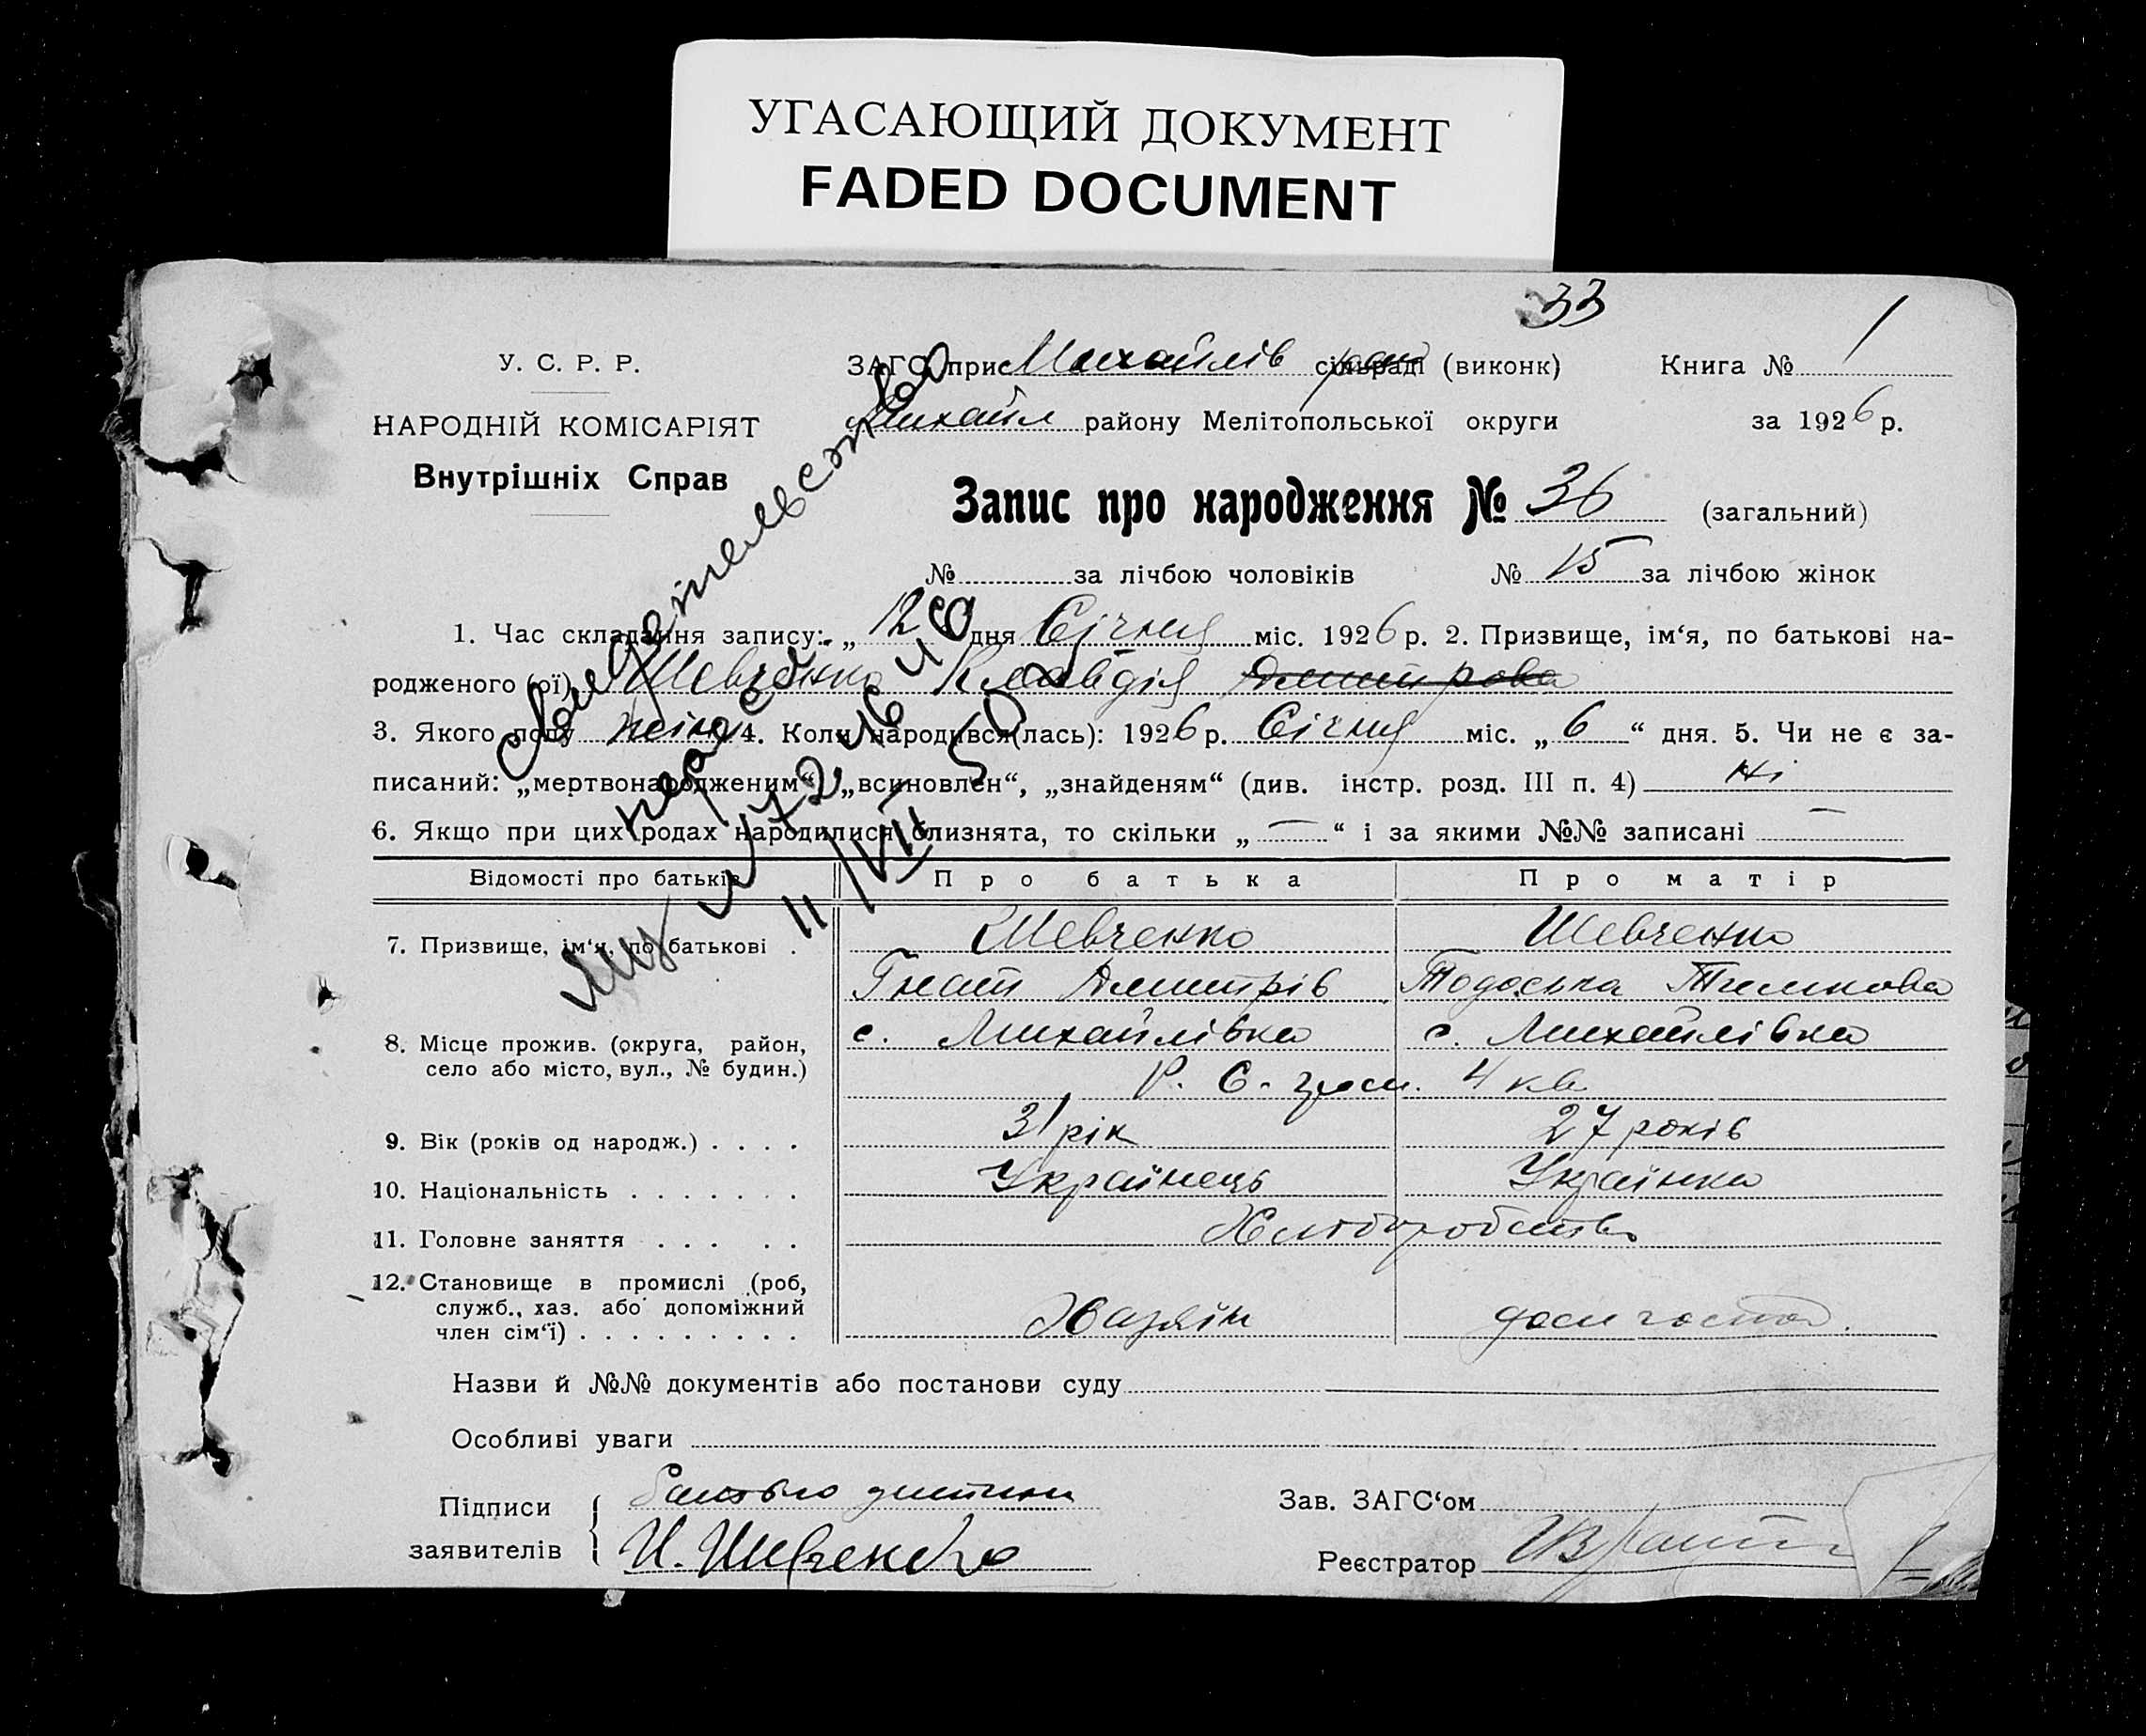 УГАСАЮЩИЙ ДОКУМЕНТ
FADED DOCUMENT
33
У. С. Р. Р.
НАРОДНІЙ КОМІСАРІЯТ
Внутрішніх Справ
ЗАГС при Михайлів сільраді (виконк)
Михайл району Мелітопольської округи
Книга № 1
за 1926 р.
Запис про народження № 36 (загальний)
№ за лічбою чоловіків № 15 за лічбою жінок
1. Час складання запису: „ 12 дня Січня міс. 1926 р. 2. Призвище, ім‘я, по батькові на-
родженого (ої) Шевченко Клавдія Дмитрова
3. Якого полу жіно 4. Коли народився(лась): 1926 р. Січня міс. „ 6 “ дня. 5. Чи не є за-
писаний: „мертвонародженим“, „всиновлен“, „знайденям“ (див. інстр. розд. III п. 4) Ні
6. Якщо при цих родах народилися близнята, то скільки „ — “ і за якими №№ записані —
Свидетельство
11/VII 50
Відомості про батьків
Про батька
Про матір
7. Призвище, ім‘я, по батькові .
Шевченко
Гнат Дмитрів
Шевченко
Тодоська Тимкова
8. Місце прожив. (округа, район,
село або місто, вул., № будин.)
с. Михайлівка
с. Михайлівка
Р. С. 4 кв
9. Вік (років од народж.) . . . .
31 рік
27 років
10. Національність . . . . . . .
Українець
Українка
11. Головне заняття . . . . .
Хліборобство
12. Становище в промислі (роб,
служб., хаз. або допоміжний
член сім‘ї) . . . . . . . . .
Хазяїн
Назви й №№ документів або постанови суду
Особливі уваги
Підписи
заявителів
Батько дитини
И. Шевченко
Зав. ЗАГС‘ом
Реєстратор